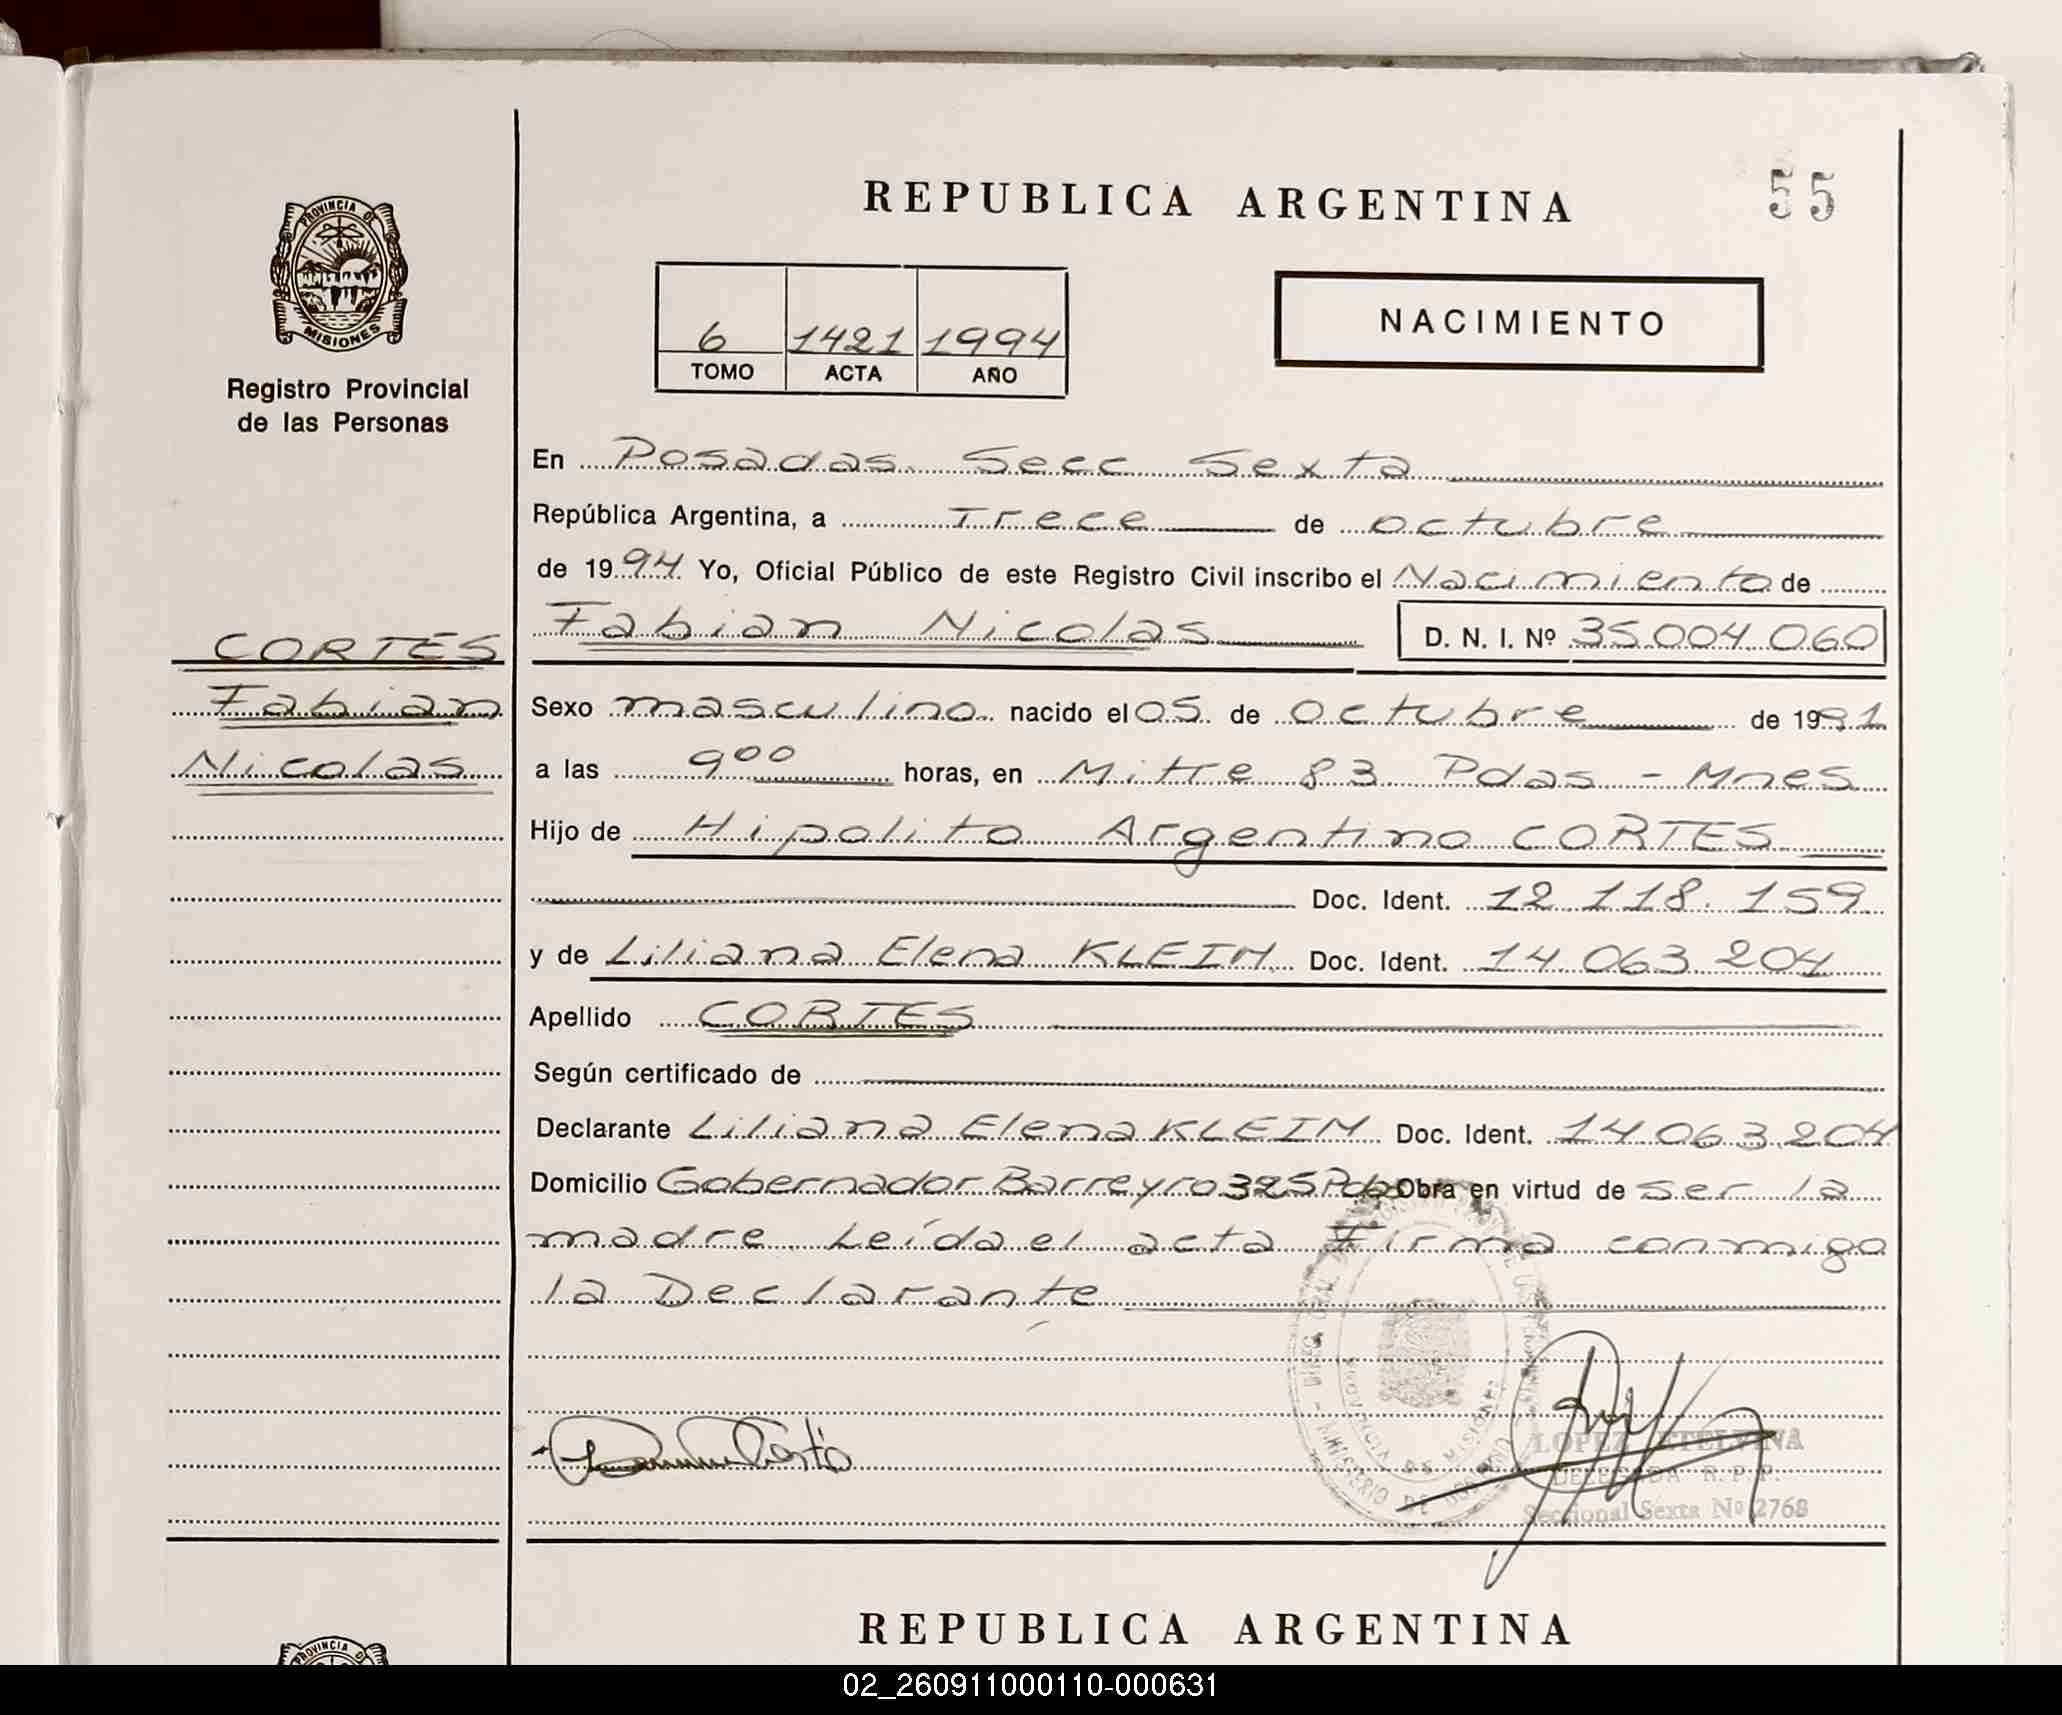 REPUBLICA ARGENTINA
55
PROVINCIA DE
MISIONES
Registro Provincial
de las Personas
6 1421 1994
TOMO ACTA AÑO
NACIMIENTO
En Posadas Secc Sexta
República Argentina, a Trece de octubre
de 1994 Yo, Oficial Público de este Registro Civil inscribo el Nacimiento de
Fabian Nicolas D. N. I. Nº 35.004.060
CORTES
Fabian
Nicolas
Sexo masculino nacido el 05 de octubre de 1991
a las 9 00 horas, en Mitre 83 Pdas - Mnes
Hijo de Hipolito Argentino CORTES
Doc. Ident. 12 118. 159
y de Liliana Elena KLEIN Doc. Ident. 14 063 204
Apellido CORTES
Según certificado de
Declarante Liliana Elena KLEIN Doc. Ident. 14 063 204
Domicilio Gobernador Barreyro 325 Pdas Obra en virtud de ser la
madre Leída el acta Firma conmigo
la Declarante
PROVINCIA DE MISIONES
MINISTERIO DE GOBIERNO
LOPEZ ETELVINA
DELEGADA R. P. P.
Seccional Sexta Nº 2768
REPUBLICA ARGENTINA
PROVINCIA D
02_260911000110-000631